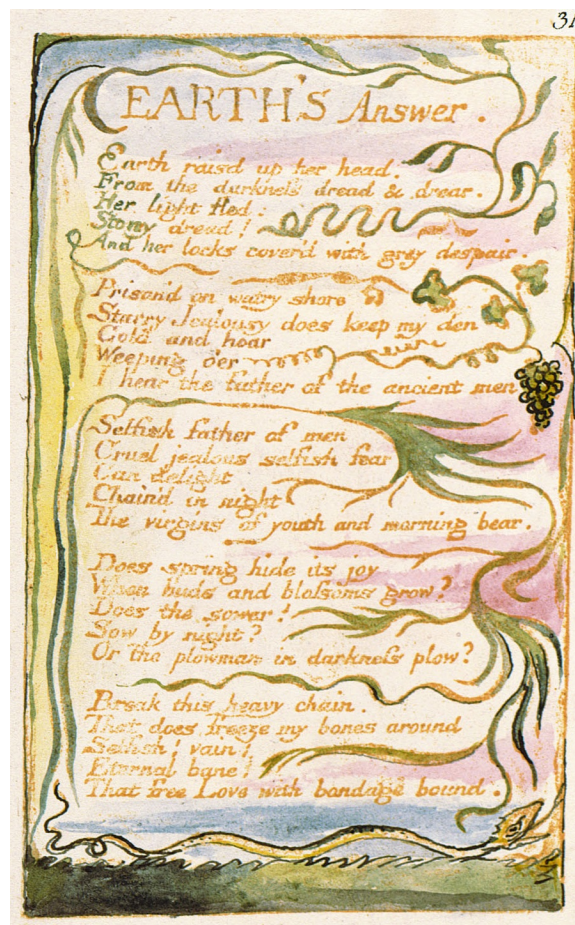 31
EARTH'S Answer.
Earth raisd up her head.
From the darkness dread & drear.
Her light fled:
Stony dread!
And her locks cover'd with grey despair.
Prison'd on watry shore
Starry Jealousy does keep my den
Cold and hoar
Weeping o'er
I hear the father of the ancient men
Selfish father of men
Cruel jealous selfish fear
Can delight
Chain'd in night
The virgins of youth and morning bear.
Does spring hide its joy
When buds and blossoms grow?
Does the sower!
Sow by night?
Or the plowman in darkness plow?
Break this heavy chain.
That does freeze my bones around
Selfish! vain!
Eternal bane!
That free Love with bondage bound.